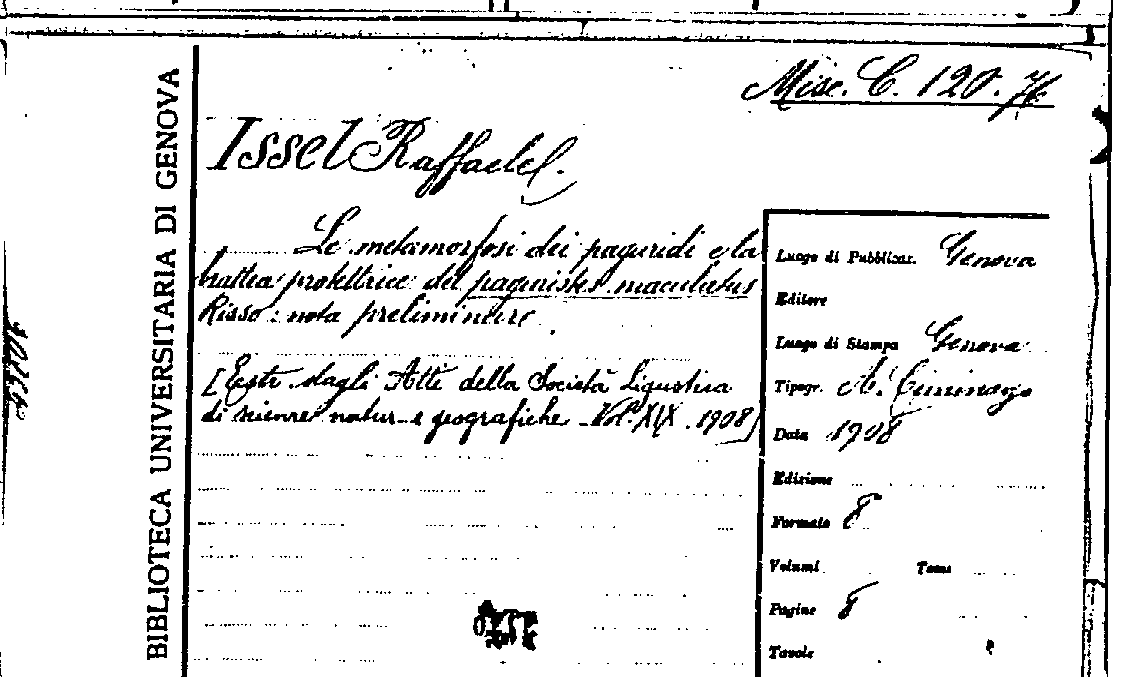 Misc. C. 120. 76
BIBLIOTECA UNIVERSITARIA DI GENOVA
Issel Raffaele.
Le metamorfosi dei paguridi e la
hattea protettrice del paguristes maculatus
Risso: nota preliminare
[Estr. dagli Atti della Società Ligustica
di scienze natur. e geografiche Vol. XIX. 1908]
Luogo di Pubblicaz. Genova
Editore
Luogo di Stampa Genova
Tipogr. A. Ciminago
Data 1908
Edizione
Formato 8
Volumi Tomi
Pagine 8
Tavole